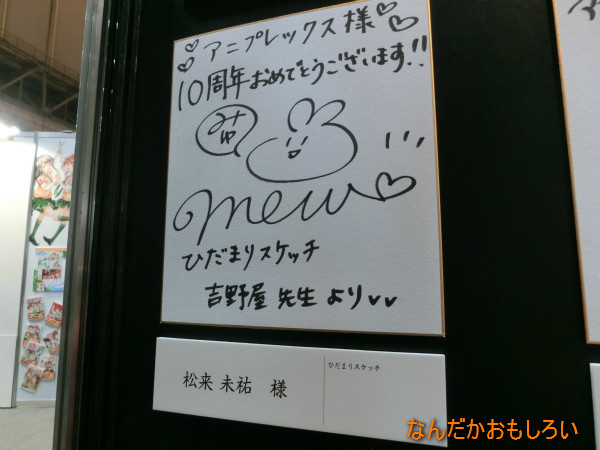 ♡♡アニプレックス様♡♡
10周年おめでとうございます!!
みゅ
mew♡
ひだまりスケッチ
吉野屋 先生 よりvv
松来 未祐 様
ひだまりスケッチ
なんだかおもしろい